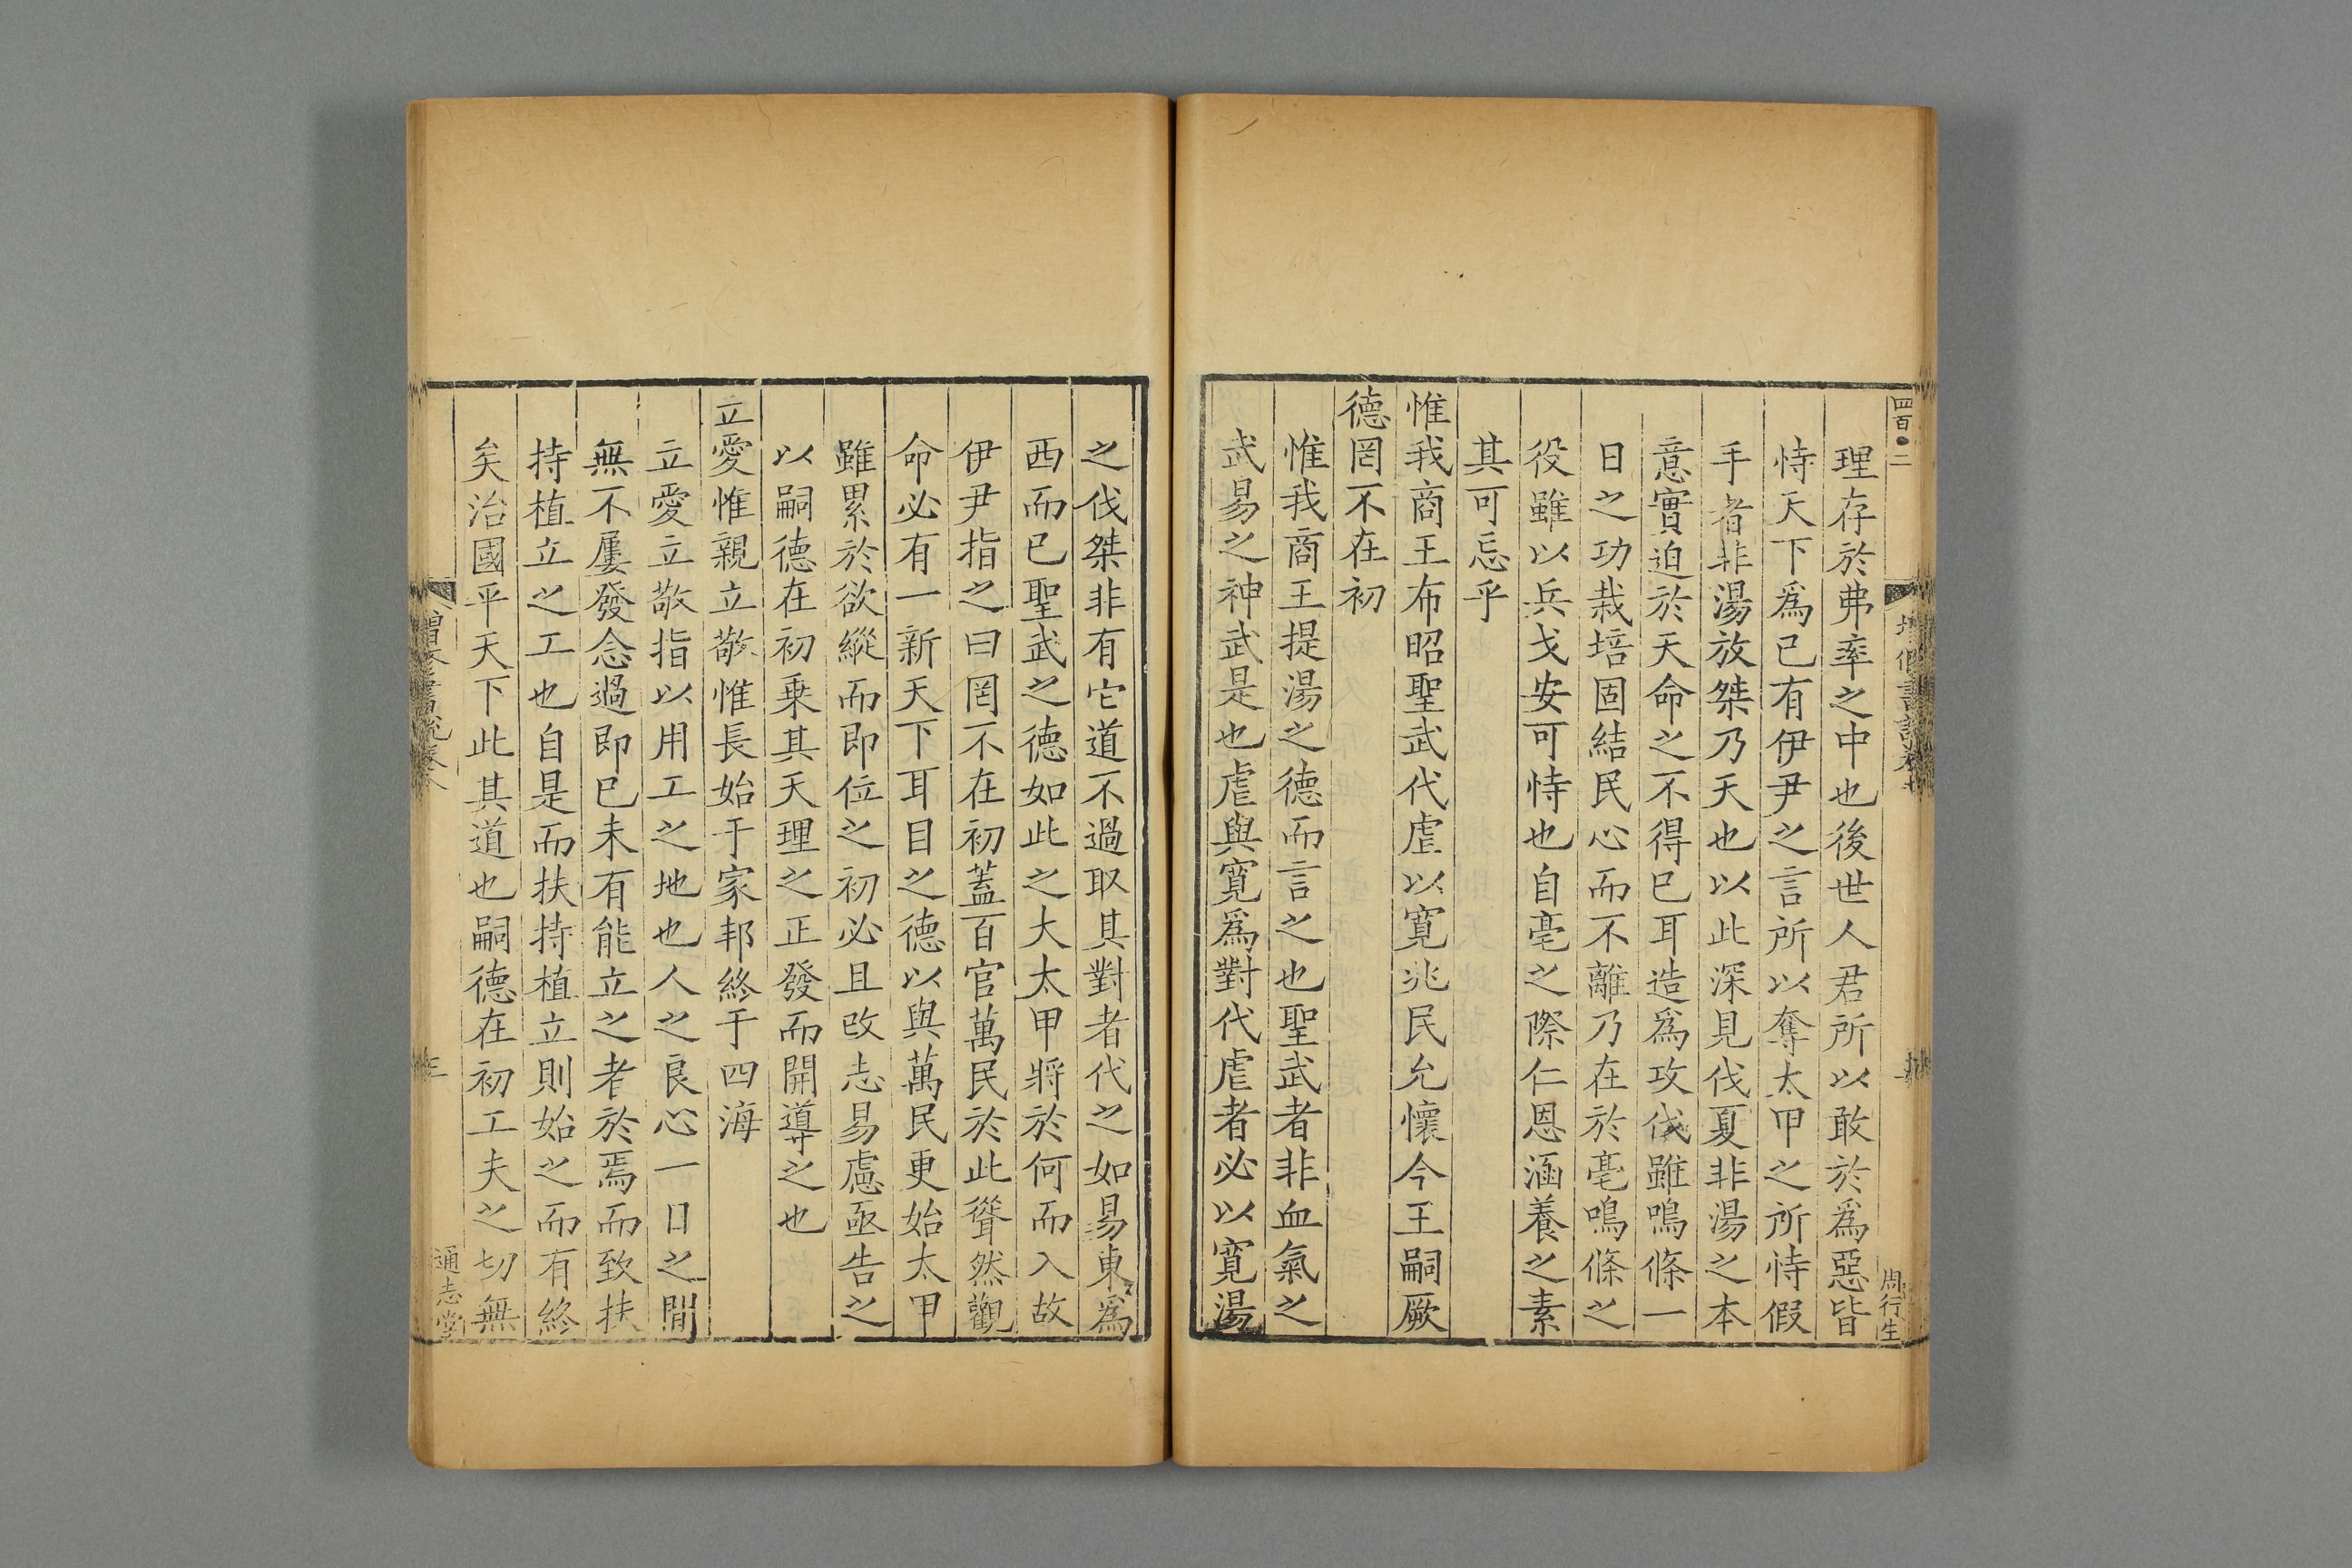 四百二
周行生
理存於弗率之中也後世人君所以敢於爲惡皆
恃天下爲已有伊尹之言所以奪太甲之所恃假
手者非湯放桀乃天也以此深見伐夏非湯之本
意實迫於天命之不得已耳造爲攻伐雖鳴條一
日之功栽培固結民心而不離乃在於亳鳴條之
役雖以兵戈安可恃也自亳之際仁恩涵養之素
其可忘乎
惟我商王布昭聖武代虐以寬兆民允懷今王嗣厥
德罔不在初
惟我商王提湯之德而言之也聖武者非血氣之
武易之神武是也虐與寬爲對代虐者必以寬湯
之伐桀非有它道不過取其對者代之如易東爲
西而已聖武之德如此之大太甲將於何而入故
伊尹指之曰罔不在初蓋百官萬民於此聳然觀
命必有一新天下耳目之德以與萬民更始太甲
雖累於欲縱而即位之初必且改志易慮亟告之
以嗣德在初乗其天理之正發而開導之也
立愛惟親立敬惟長始于家邦終于四海
立愛立敬指以用工之地也人之良心一日之間
無不屢發念過即已未有能立之者於焉而致扶
持植立之工也自是而扶持植立則始之而有終
矣治國平天下此其道也嗣德在初工夫之切無
通志堂